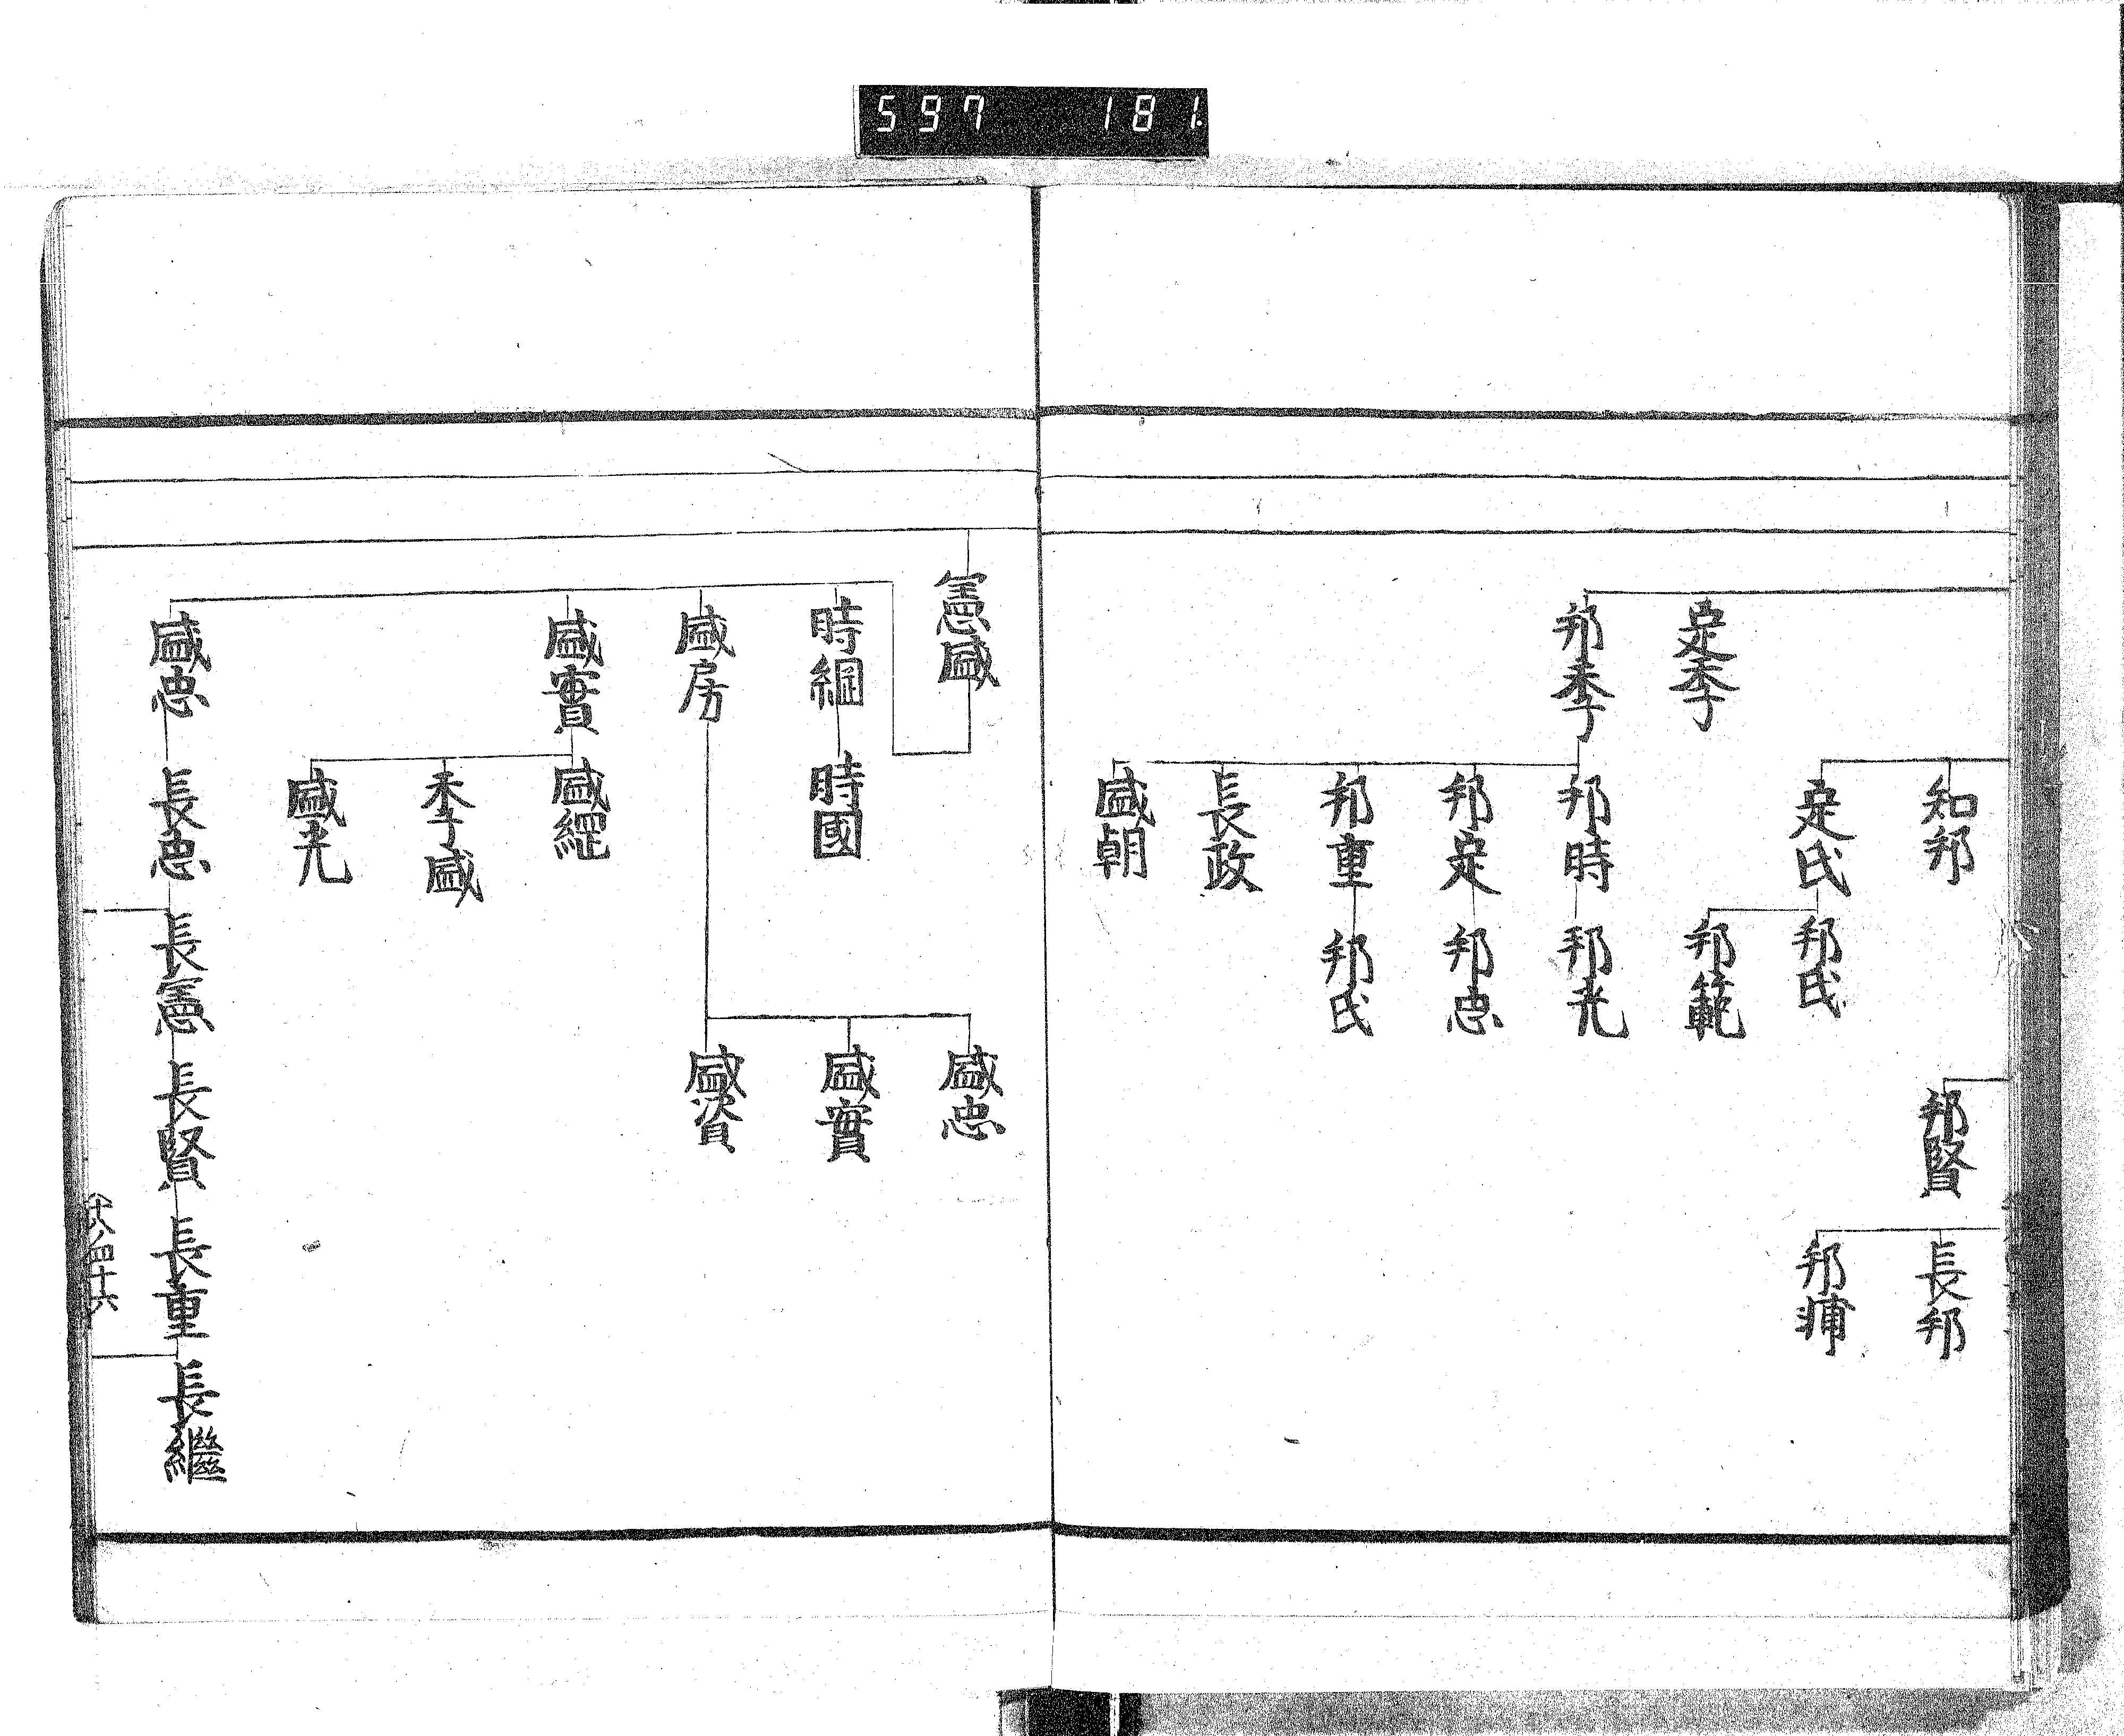 597 181
知邦
定氏
邦氏
邦範
邦賢
長邦
邦輔
定季
邦季
邦時
邦光
邦定
邦忠
邦重
邦氏
長政
盛朝
憲盛
時綱
時國
盛房
盛忠
盛實
盛資
盛實
盛經
季盛
盛光
盛忠
長忠
長憲
長賢
長重
長繼
十八ノ四十六